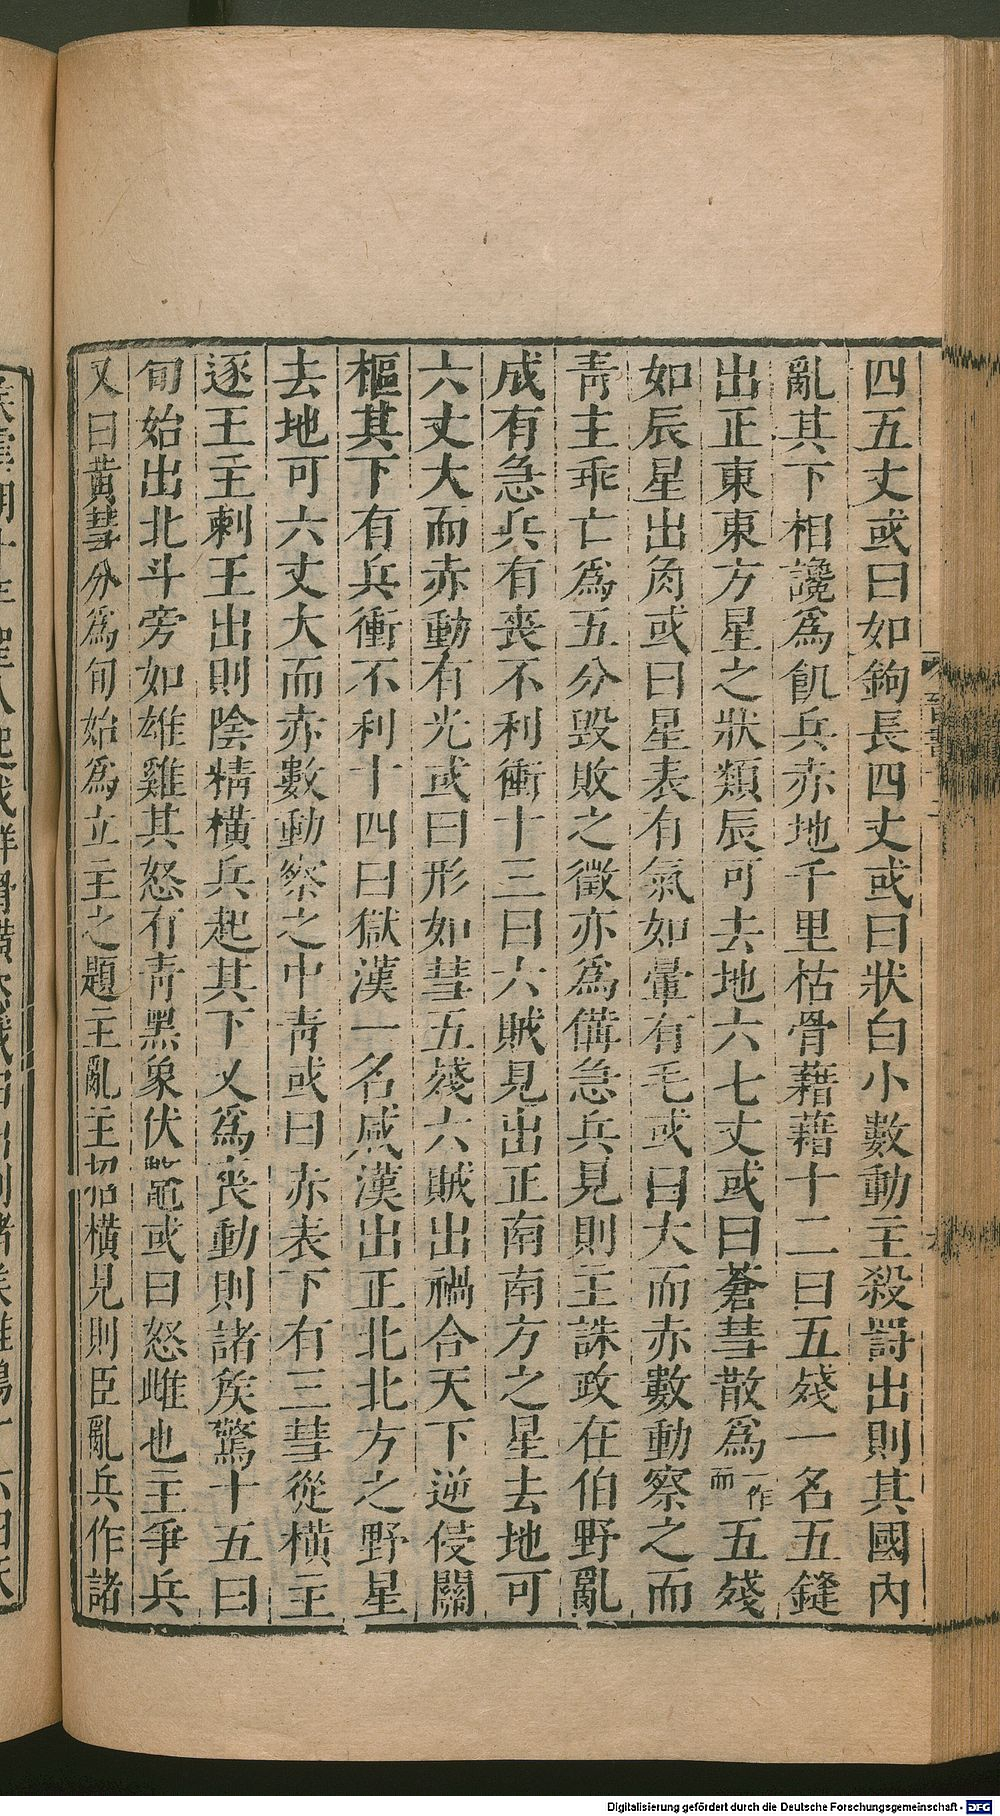 四五丈或曰如鉤長四丈或曰狀白小數動主殺罰出則其國內
亂其下相讒爲飢兵赤地千里枯骨藉藉十二曰五殘一名五鏠
出正東東方星之狀類辰可去地六七丈或曰蒼彗散爲一作而五殘
如辰星出角或曰星表有氣如暈有毛或曰大而赤數動察之而
靑主乖亡爲五分毀敗之徵亦爲備急兵見則主誅政在伯野亂
成有急兵有喪不利衝十三曰六賊見出正南南方之星去地可
六丈大而赤動有光或曰形如彗五殘六賊出禍合天下逆侵關
樞其下有兵衝不利十四曰獄漢一名咸漢出正北北方之野星
去地可六丈大而赤數動察之中靑或曰赤表下有三彗從橫主
逐王主刺王出則陰精橫兵起其下又爲喪動則諸矦驚十五曰
旬始出北斗旁如雄雞其怒有靑黑象伏鼈或曰怒雌也主爭兵
又曰黃彗分爲旬始爲立主之題主亂主招橫見則臣亂兵作諸
晉書十二
Digitalisierung gefördert durch die Deutsche Forschungsgemeinschaft - DFG